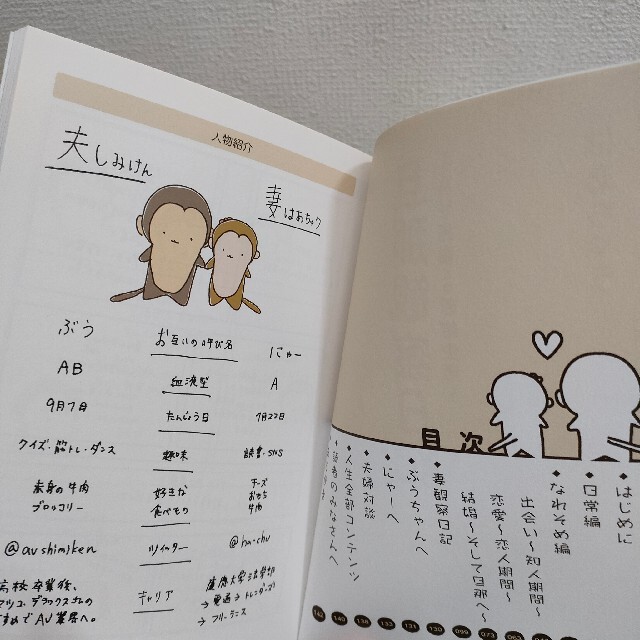 人物紹介
夫 しみけん
妻 はあちゅう
ぶう お互いの呼び名 にゃー
AB 血液型 A
9月7日 たんじょう日 1月22日
クイズ・筋トレ・ダンス 趣味 読書・SNS
赤身の牛肉 ブロッコリー 好きな食べもの チーズ おもち 牛肉
@avshimiken ツイッター @ha_chu
高校卒業後、 キャリア 慶應大学法学部
マツコ・デラックスさんの →電通→トレンダーズ
すすめでAV業界へ。 →フリーランス
目次
◆はじめに
日常編
◆なれそめ編
出会い〜知人期間〜
恋愛〜恋人期間〜
結婚〜そして旦那へ〜
◆妻観察日記
◆ぶうちゃんへ
◆にゃーへ
◆夫婦対談
◆人生全部コンテンツ
読者のみなさんへ
140
138
133
131
130
099
073